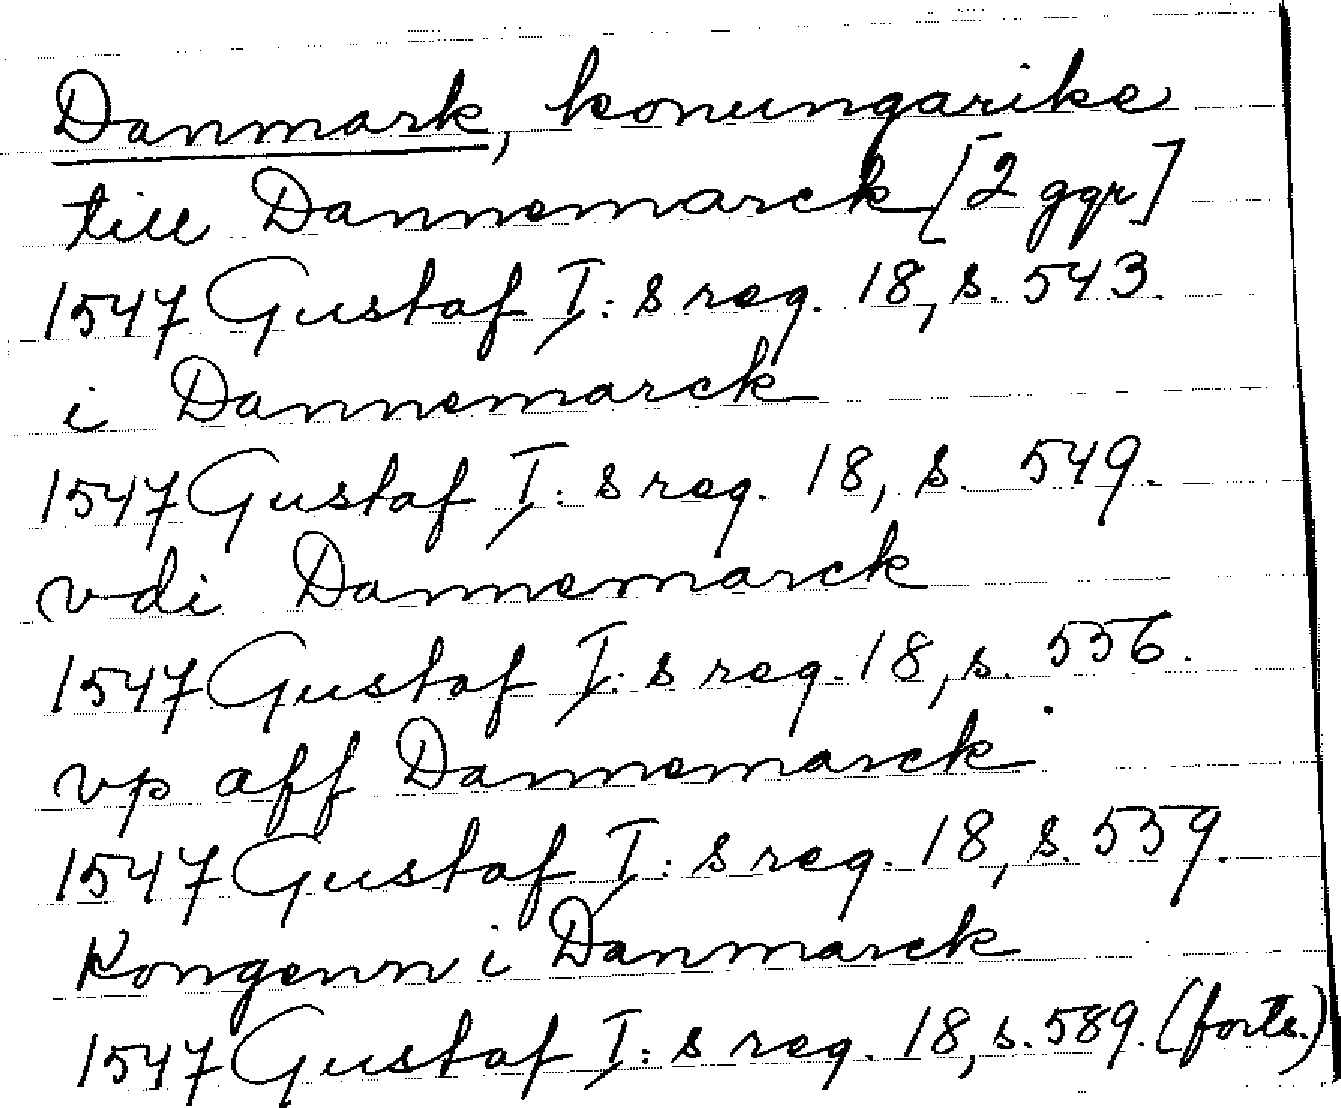 Danmark, konungarike
till Dannemarck [2 ggr]
1547 Gustaf I: s reg. 18, s. 543.
i Dannemarck
1547 Gustaf I: s reg. 18, s. 549.
vdi Dannemarck
1547 Gustaf I: s reg. 18, s. 556.
vp aff Dannemarck
1547 Gustaf I: s reg. 18, s. 559.
Kongenn i Danmarck
1547 Gustaf I: s reg. 18, s. 589. (forts.)